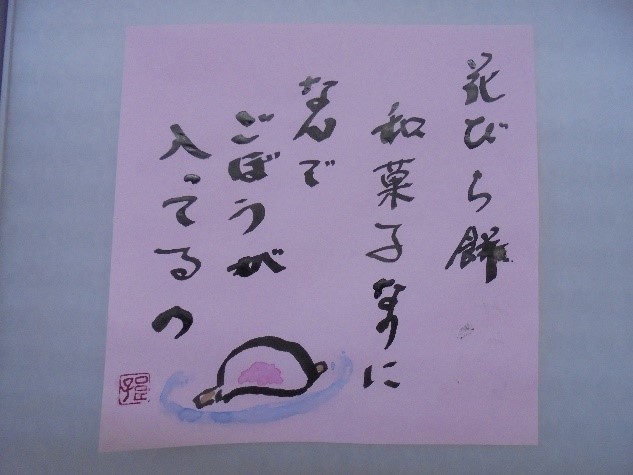 花びら餅
和菓子なのに
なんで
ごぼうが
入ってるの